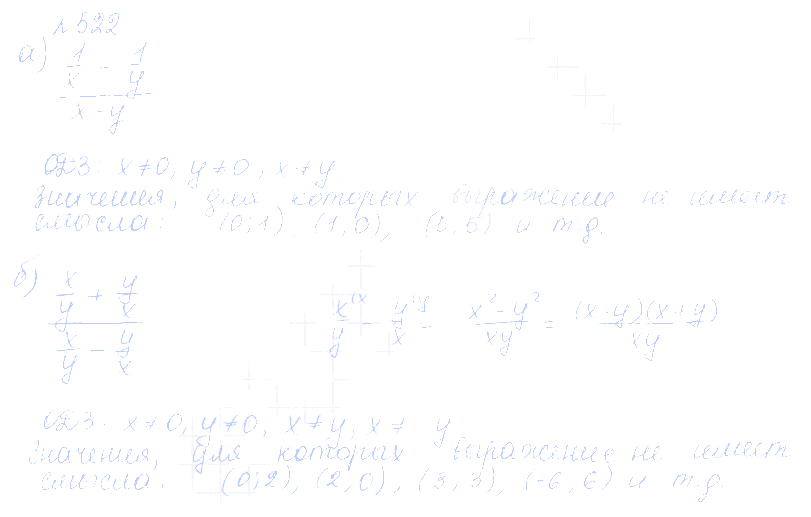 №522
а) (1/x - 1/y)/(x - y)
ОДЗ: x ≠ 0, y ≠ 0, x ≠ y
Значения, для которых выражение не имеет
смысла: (0; 1) (1, 0), (5, 5) и т.д.
б) (x/y + y/x)/(x/y - y/x) x/y - y/x = (x² - y²)/xy = (x - y)(x + y)/xy
ОДЗ: x ≠ 0, y ≠ 0, x ≠ y, x ≠ y
Значения, для которых выражение не имеет
смысла. (0; 2), (2, 0), (3, 3), (-6, 6) и т.д.